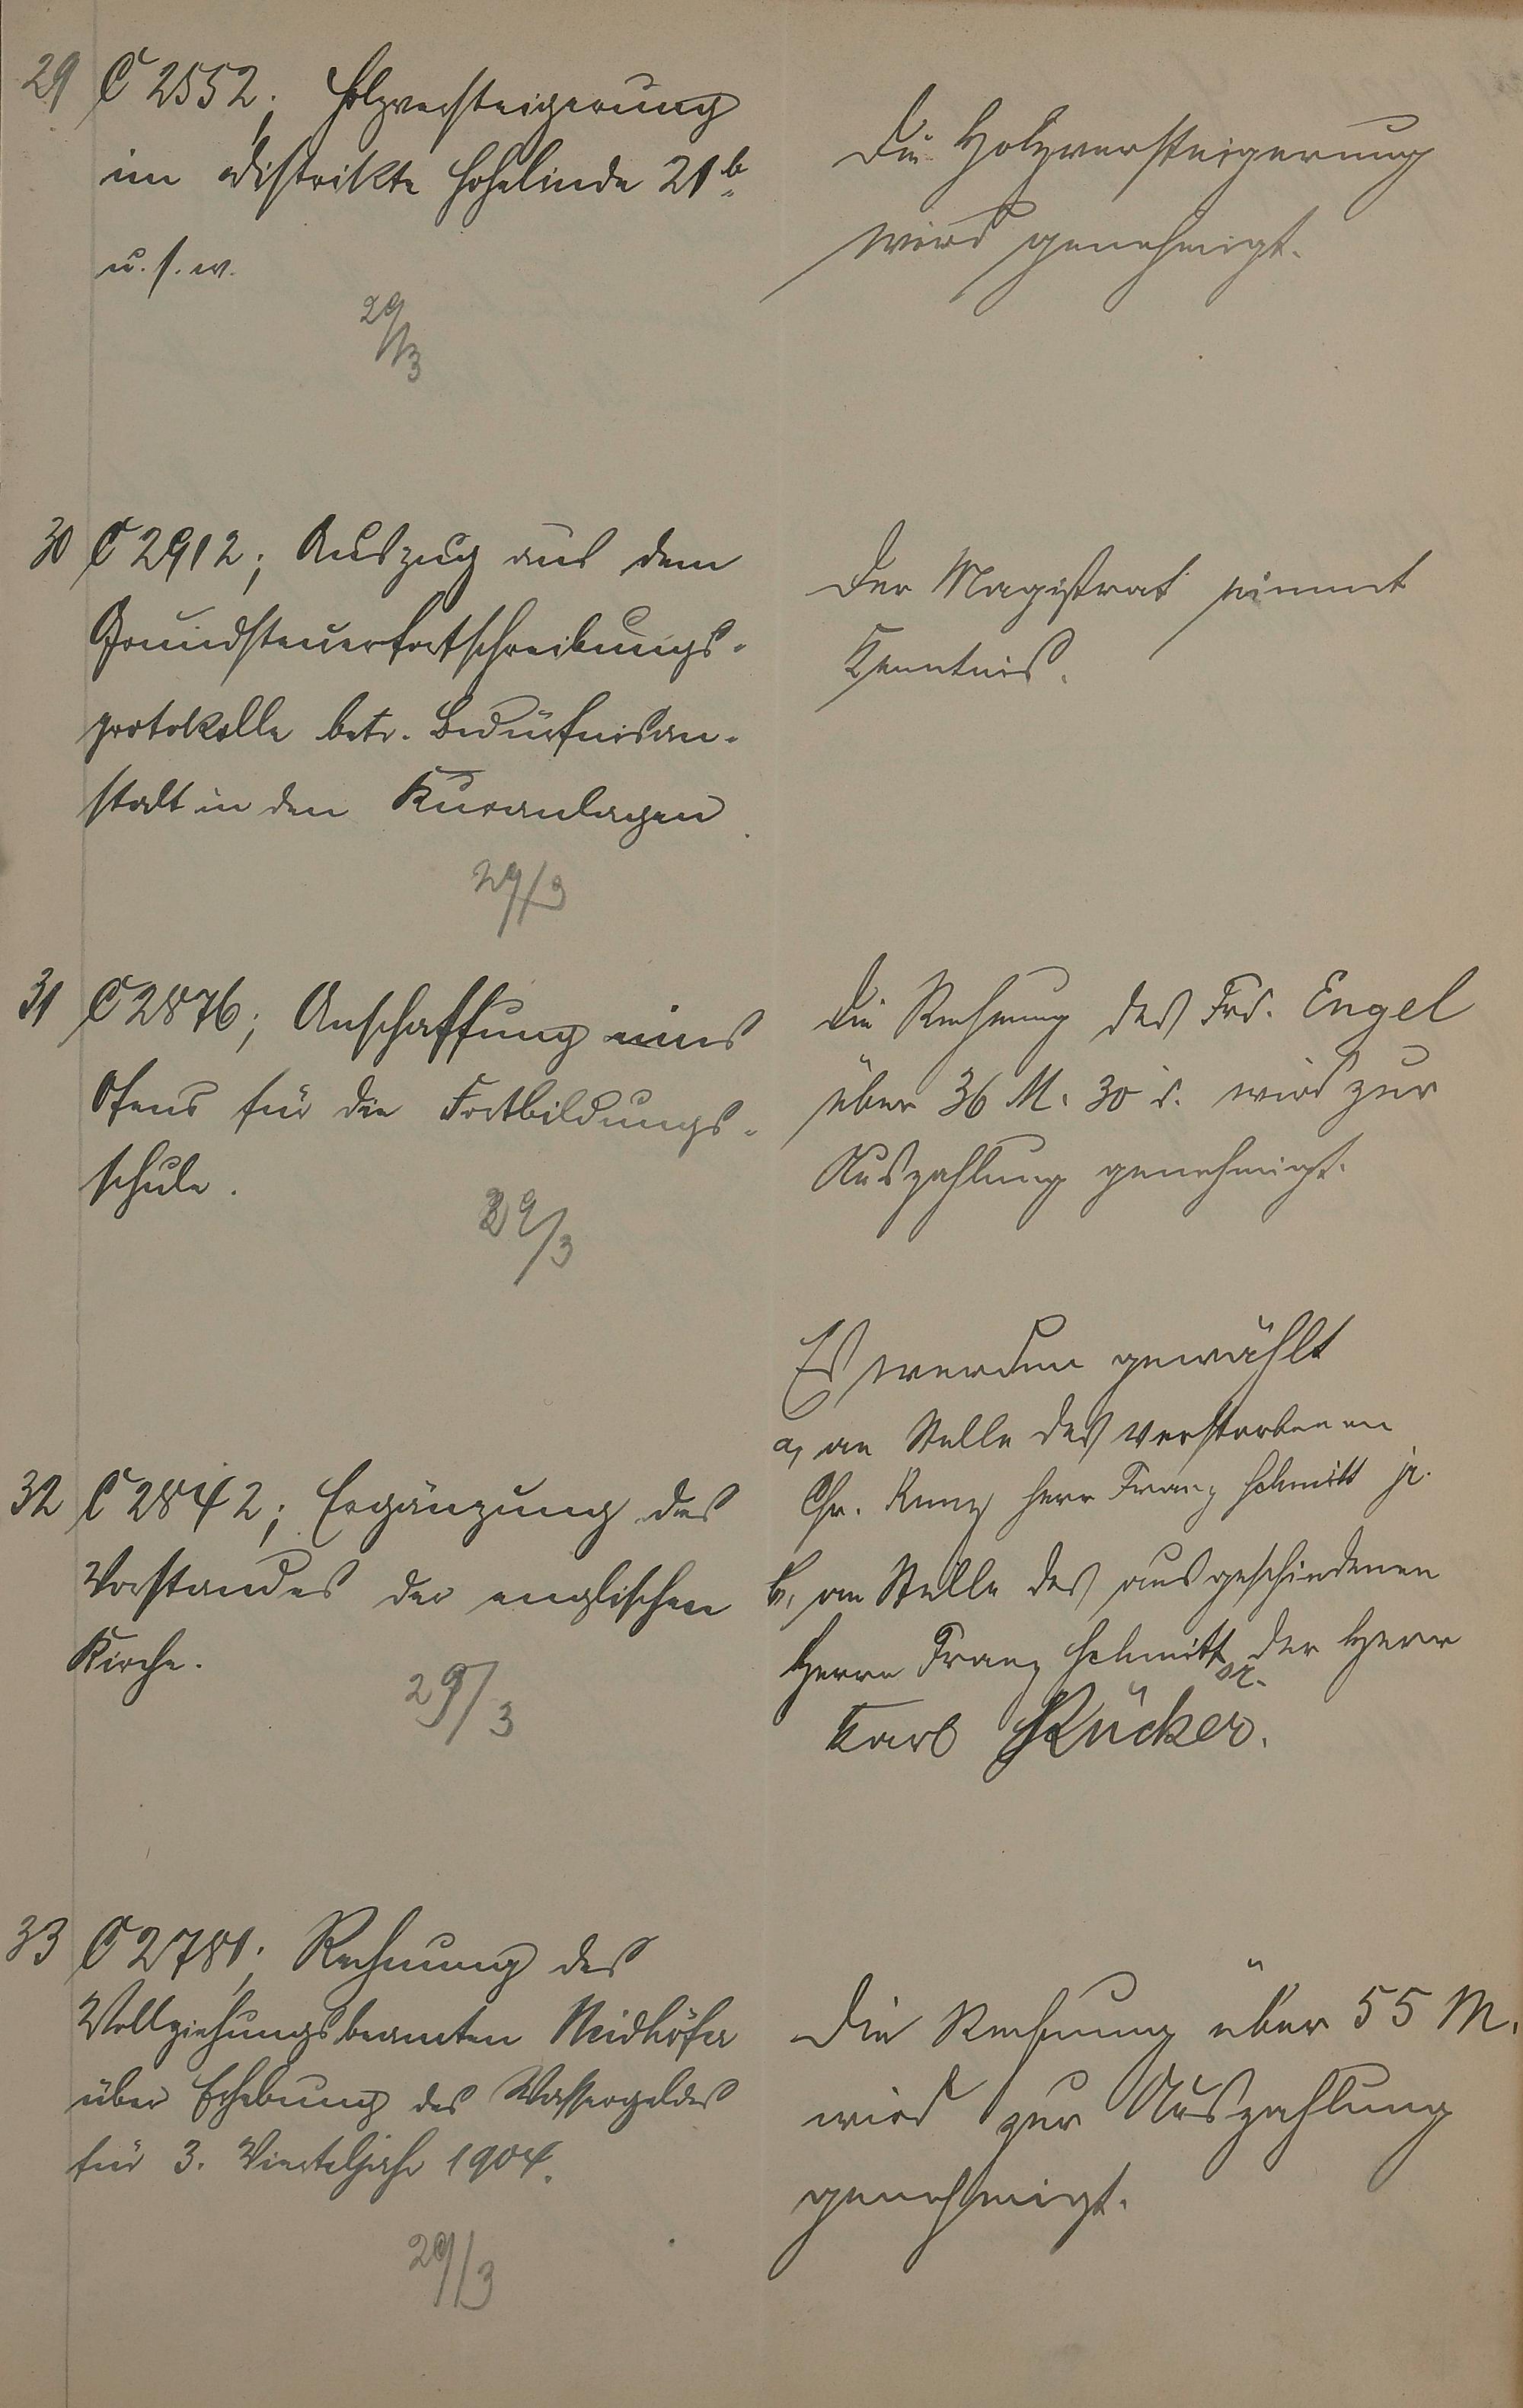 29 C 2552; Holzversteigerung
im Distrikte Hohelinde 21b
u. s. w.
29/3
Die Holzversteigerung
wird genehmigt.
30 C 2912; Auszug aus dem
Grundsteuerfortschreibungs-
protokolle betr. Bedürfnisan-
stalt in den Kuranlagen
29/3
Der Magistrat nimmt
Kenntnis.
31 C 2876; Anschaffung eines
Ofens für die Fortbildungs-
schule.
29/3
Die Rechnung des Frd. Engel
über 36 M. 30 d. wird zur
Auszahlung genehmigt.
32 C 2842; Ergänzung des
Vorstandes der englischen
Kirche.
29/3
Es werden gewählt
a, an Stelle des verstorbenen
Chr. Runz Herr Franz Schmitt jr.
b, an Stelle des ausgeschiedenen
Herrn Franz Schmitt sr. der Herr
Karl Rücker.
33 C 2781; Rechnung des
Vollziehungsbeamten Neidhöfer
über Erhebung des Wassergeldes
für 3. Vierteljahr 1904.
29/3
Die Rechnung über 55 M.
wird zur Auszahlung
genehmigt.